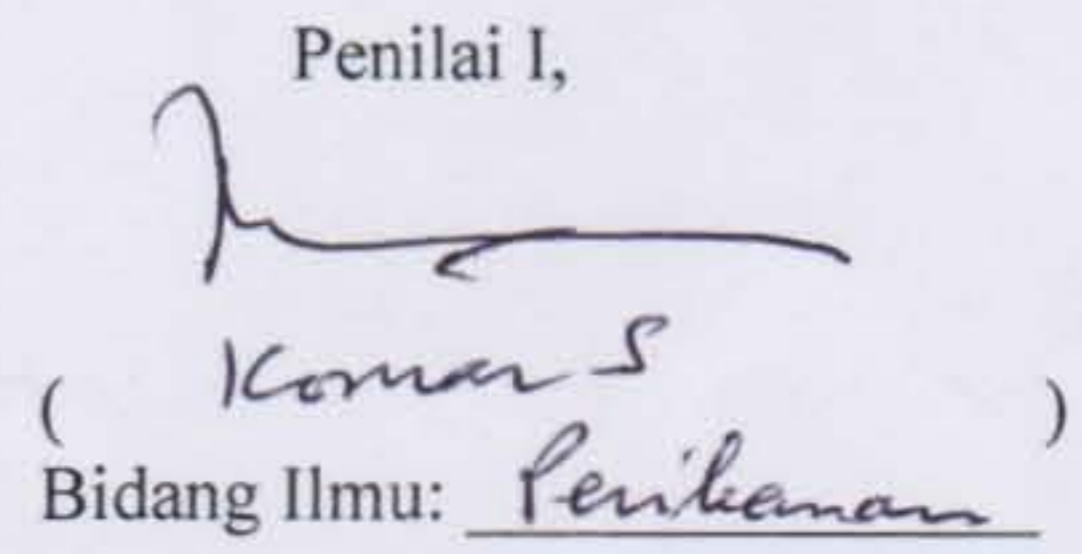 Penilai I,
( Komar S )
Bidang Ilmu: Perikanan